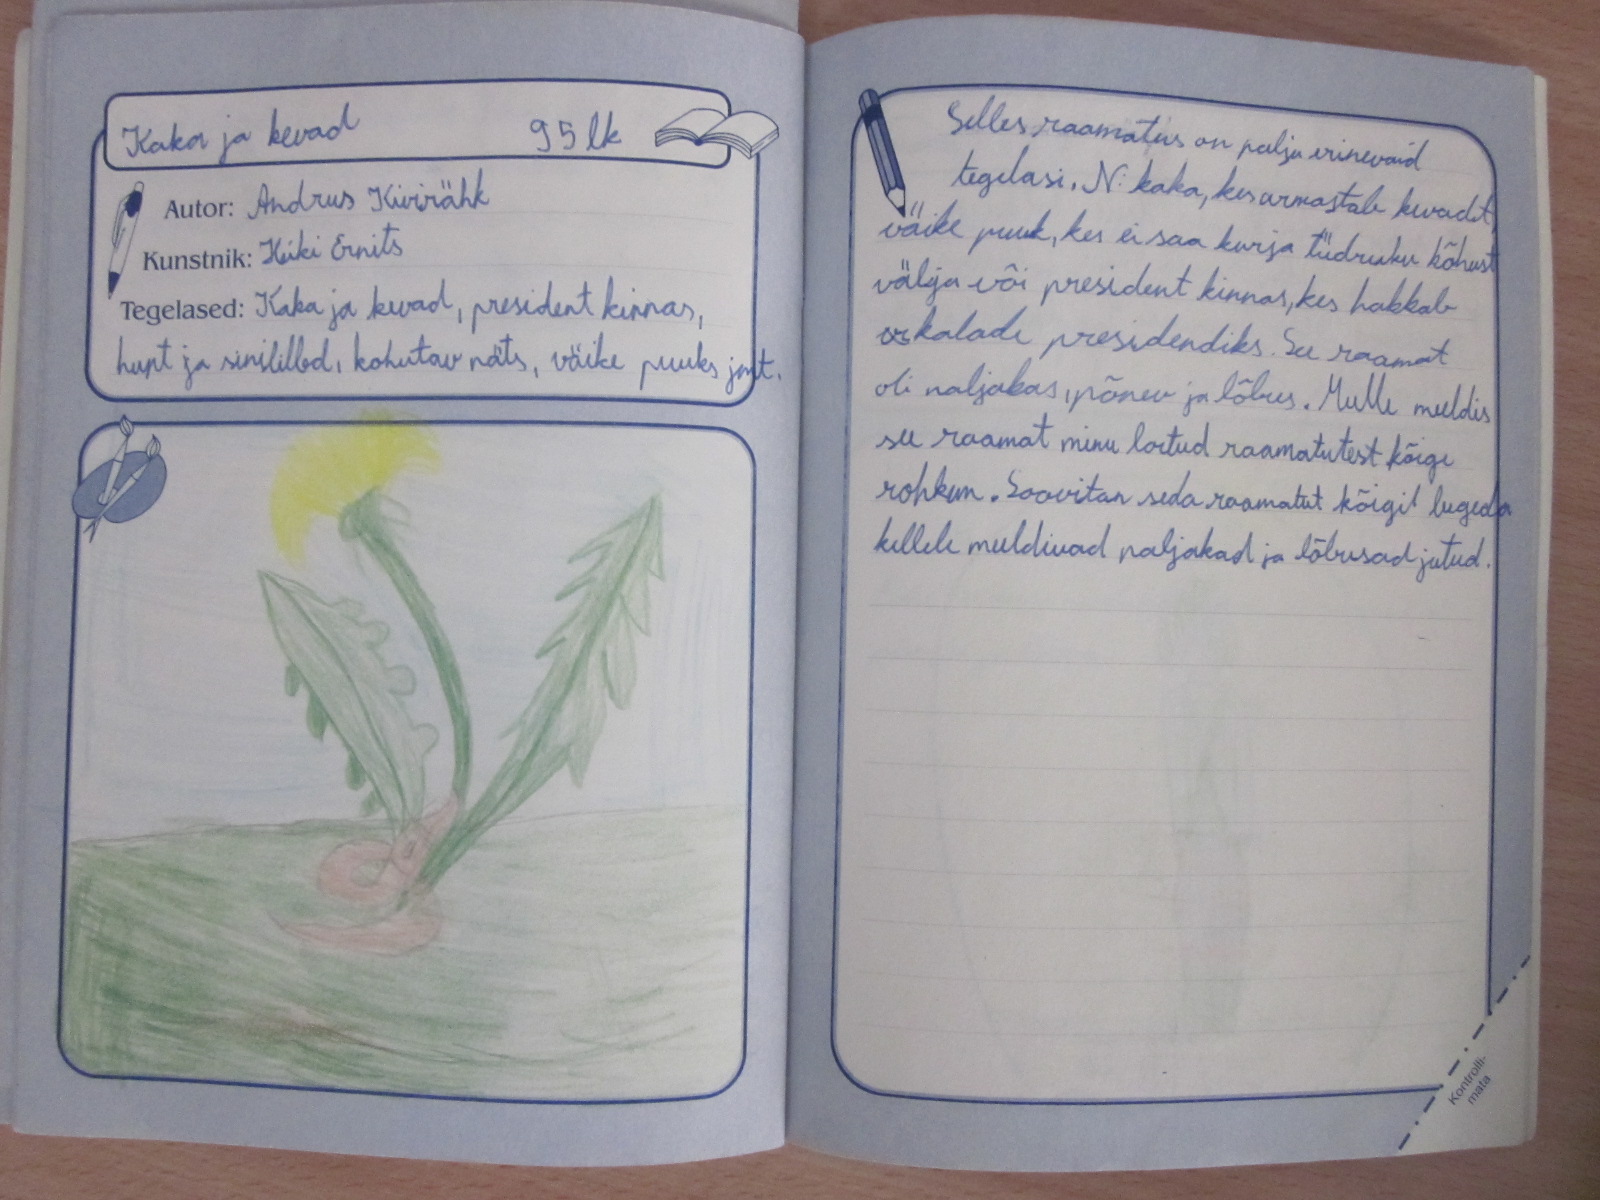 Kaka ja kevad 95 lk
Autor: Andrus Kivirähk
Kunstnik: Heiki Ernits
Tegelased: Kaka ja kevad, president kinnas,
hunt ja sinililled, kohutav näts, väike puuks jmt.
Selles raamatus on palju erinevaid
tegelasi. N: kaka, kes armastab kevadet,
väike puuk, kes ei saa kurja tüdruku kõhust
välja või president kinnas, kes hakkab
oskalade presidendiks. See raamat
oli naljakas, põnev ja lõbus. Mulle meeldis
see raamat minu loetud raamatutest kõige
rohkem. Soovitan seda raamatut kõigil lugeda
kellele meeldivad naljakad ja lõbusad jutud.
Kontrolli-
mata